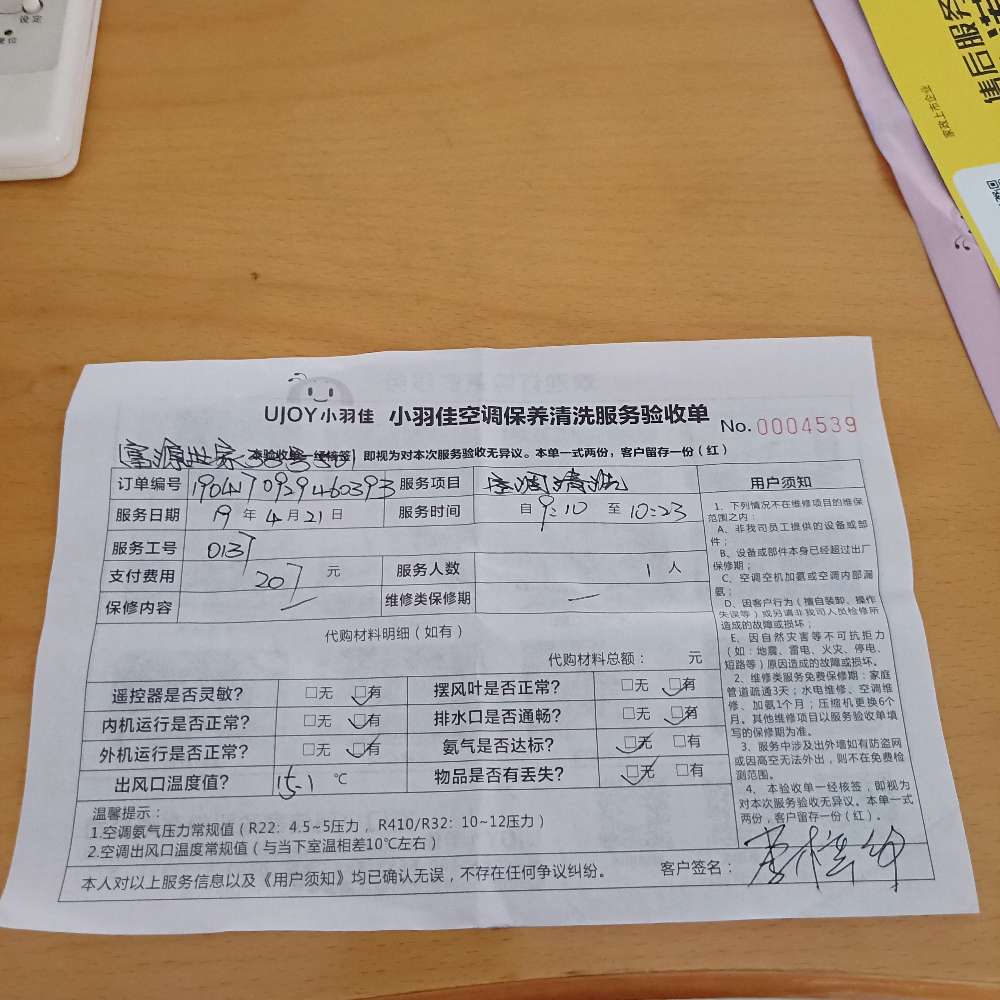 设定
复位
售后服务
家政上市企业
UJOY小羽佳 小羽佳空调保养清洗服务验收单 No.0004539
富源世家 本验收单一经核签,即视为对本次服务验收无异议。本单一式两份,客户留存一份(红)
订单编号 服务项目 空调清洗
服务日期 19年4月21日 服务时间 自9:10至10:23
服务工号 0137
支付费用 207 元 服务人数 1人
保修内容 — 维修类保修期 —
代购材料明细(如有)
代购材料总额: 元
遥控器是否灵敏? □无 ☑有 摆风叶是否正常? □无 ☑有
内机运行是否正常? □无 ☑有 排水口是否通畅? □无 ☑有
外机运行是否正常? □无 ☑有 氨气是否达标? ☑无 □有
出风口温度值? 15.1 ℃ 物品是否有丢失? ☑无 □有
温馨提示:
1.空调氨气压力常规值(R22:4.5~5压力,R410/R32:10~12压力)
2.空调出风口温度常规值(与当下室温相差10℃左右)
本人对以上服务信息以及《用户须知》均已确认无误,不存在任何争议纠纷。 客户签名:
用户须知
1、下列情况不在维修项目的维保
范围之内:
A、非我司员工提供的设备或部
件;
B、设备或部件本身已经超过出厂
保修期;
C、空调空机加氨或空调内部漏
氨;
D、因客户行为(擅自装卸、操作
失误等)或另请非我司人员检修所
造成的故障或损坏;
E、因自然灾害等不可抗拒力
(如:地震、雷电、火灾、停电、
短路等)原因造成的故障或损坏。
2、维修类服务免费保修期:家庭
管道疏通3天;水电维修、空调维
修、加氨1个月;压缩机更换6个
月。其他维修项目以服务验收单填
写的保修期为准。
3、服务中涉及出外墙如有防盗网
或因高空无法外出,则不在免费检
测范围。
4、本验收单一经核签,即视为
对本次服务验收无异议。本单一式
两份,客户留存一份(红)。